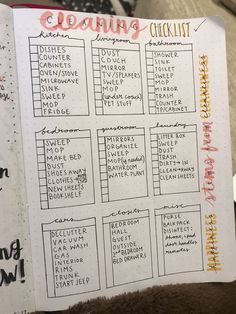 cleaning CHECKLIST
kitchen
DISHES
COUNTER
CABINETS
OVEN/STOVE
MICROWAVE
SINK
SWEEP
MOP
FRIDGE
livingroom
DUST
COUCH
MIRROR
TV/SPEAKERS
SWEEP
MOP
(under couch)
PET STUFF
bathroom
SHOWER
SINK
TOILET
SWEEP
MOP
MIRROR
TRASH
COUNTER
TP/CABINET
bedroom
SWEEP
MOP
MAKE BED
DUST
SHOES AWAY
CLOTHES
NEW SHEETS
BOOKSHELF
guestroom
MIRRORS
ORGANIZE
SWEEP
MOP (if needed)
BATHROOM/
WATER
DUST
laundry
LITTER BOX
SWEEP
DUST
TRASH
DIRTY → IN
CLEAN → AWAY
CLEAN SHEETS
cars
DECLUTTER
VACUUM
CAR WASH
GAS
INTERIOR
RIMS
TRUNK
START JEEP
closets
BEDROOM
HALL
GUEST
OUTSIDE
2nd BEDROOM
BED DRAWERS
misc
PURSE
BACKPACK
DISINFECT:
phone, ipad
door handles
remotes
HAPPINESS
stems from
CLEANLINESS